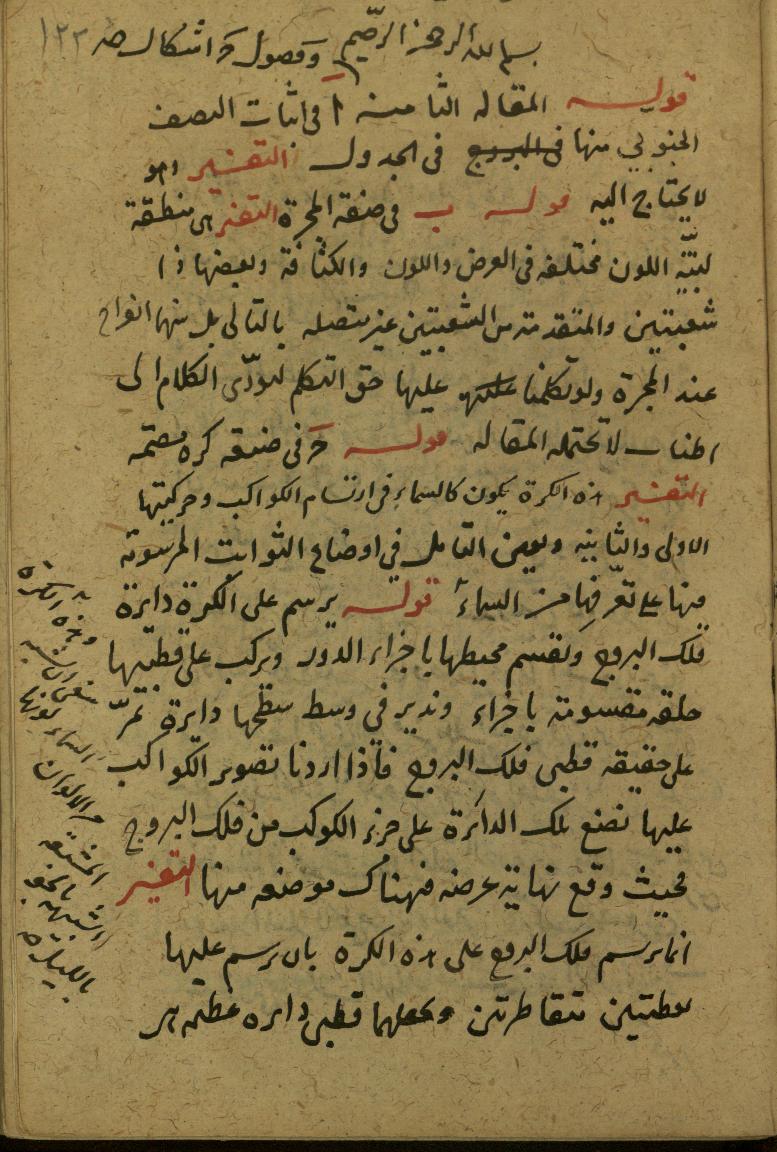 بسم الله الرحمن الرحيم وفصول واشكال صه ١٢٢
قوله المقاله الثامنه ا فى اثبات النصف
الجنوبي منها فى البروج فى الجدول التفسير وهو
لا يحتاج اليه قوله ب فى صنعة المجرة التفسير هى منطقة
لبنيّة اللون مختلفه فى العرض واللون والكثافة وبعضها ذا
شعبتين والمتقدمة من الشعبتين غير متصله بالتالى بل بينهما انفراج
عند المجرة ولو تكلمنا عليها عليها حق التكلم ليودّى الكلام الى
اطناب لا تحتمله المقاله قوله ج فى صنعه كره مصمته
التفسير هذه الكرة يكون كالسماء فى ارتسام الكواكب وحركتيها
الاولى والثانيه ويعين التامل في اوضاع الثوابت المرسومه
منها على تعرّفها من السماء قوله يرسم على الكرة دايرة
فلك البروج ونقسم محيطها باجزاء الدور ونركب على قطبيها
حلقه مقسومة باجزاء وندير في وسط سطحها دايرة تمرّ
على حقيقه قطبى فلك البروج فاذا اردنا تصوير الكواكب
عليها نضع تلك الدائرة على جزء الكوكب من فلك البروج
فحيث وقع نهاية عرضه فهناك موضعه منها التفسير
انما يرسم فلك البروج على هذه الكرة بان يرسم عليها
نقطتين متقاطرتين ونجعلهما قطبى دايره عظيمه هى
وهذه الكرة
ينبغى ان
السماء لونها
من الالوان
المشبعه
الشبيهه بالجو
بالليل